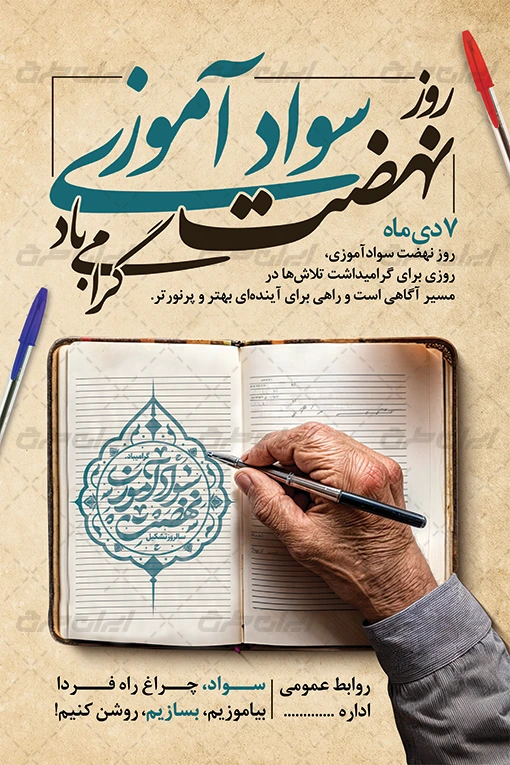 روز
نهضت سواد آموزی
گرامی باد
۷ دی ماه
روز نهضت سوادآموزی،
روزی برای گرامیداشت تلاش‌ها در
مسیر آگاهی است و راهی برای آینده‌ای بهتر و پرنورتر.
گرامیباد
سوادآموزی
نهضت
سالروز تشکیل
روابط عمومی
اداره .............
سواد، چراغ راه فردا
بیاموزیم، بسازیم، روشن کنیم!
ایران طرح